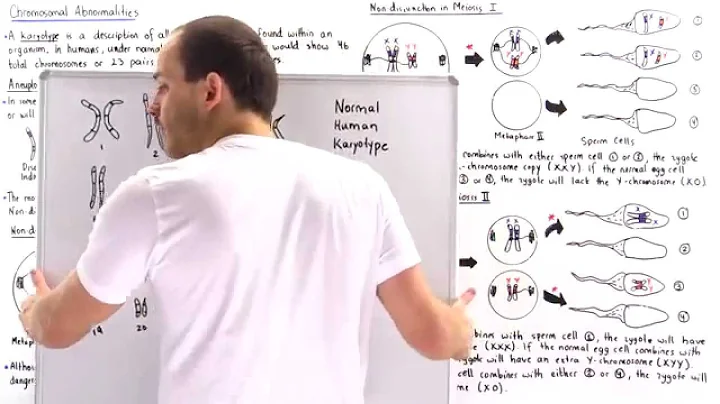 Chromosomal Abnormalities
• A karyotype is a description of all found within an
organism. In humans, under normal would show 46
total chromosomes or 23 pairs
Aneuplo
• In some
or will
Dis
Ind
• The mo
Non-di
Non-di
Metap
• Althou
danger
Normal
Human
Karyotype
1
2
19
20
Non-disjunction in Meiosis I
X X
Y Y
*
Metaphase II
Sperm Cells
1
2
3
4
combines with either sperm cell ① or ②, the zygote
-chromosome copy (XXY). If the normal egg cell
③ or ④, the zygote will lack the Y-chromosome (XO)
iosis II
X X
Y Y
*
*
X X
Y Y
1
2
3
4
bines with sperm cell ①, the zygote will have
e (XXX). If the normal egg cell combines with
zygote will have an extra Y-chromosome (XYY).
cell combines with either ② or ④, the zygote will
me (XO).